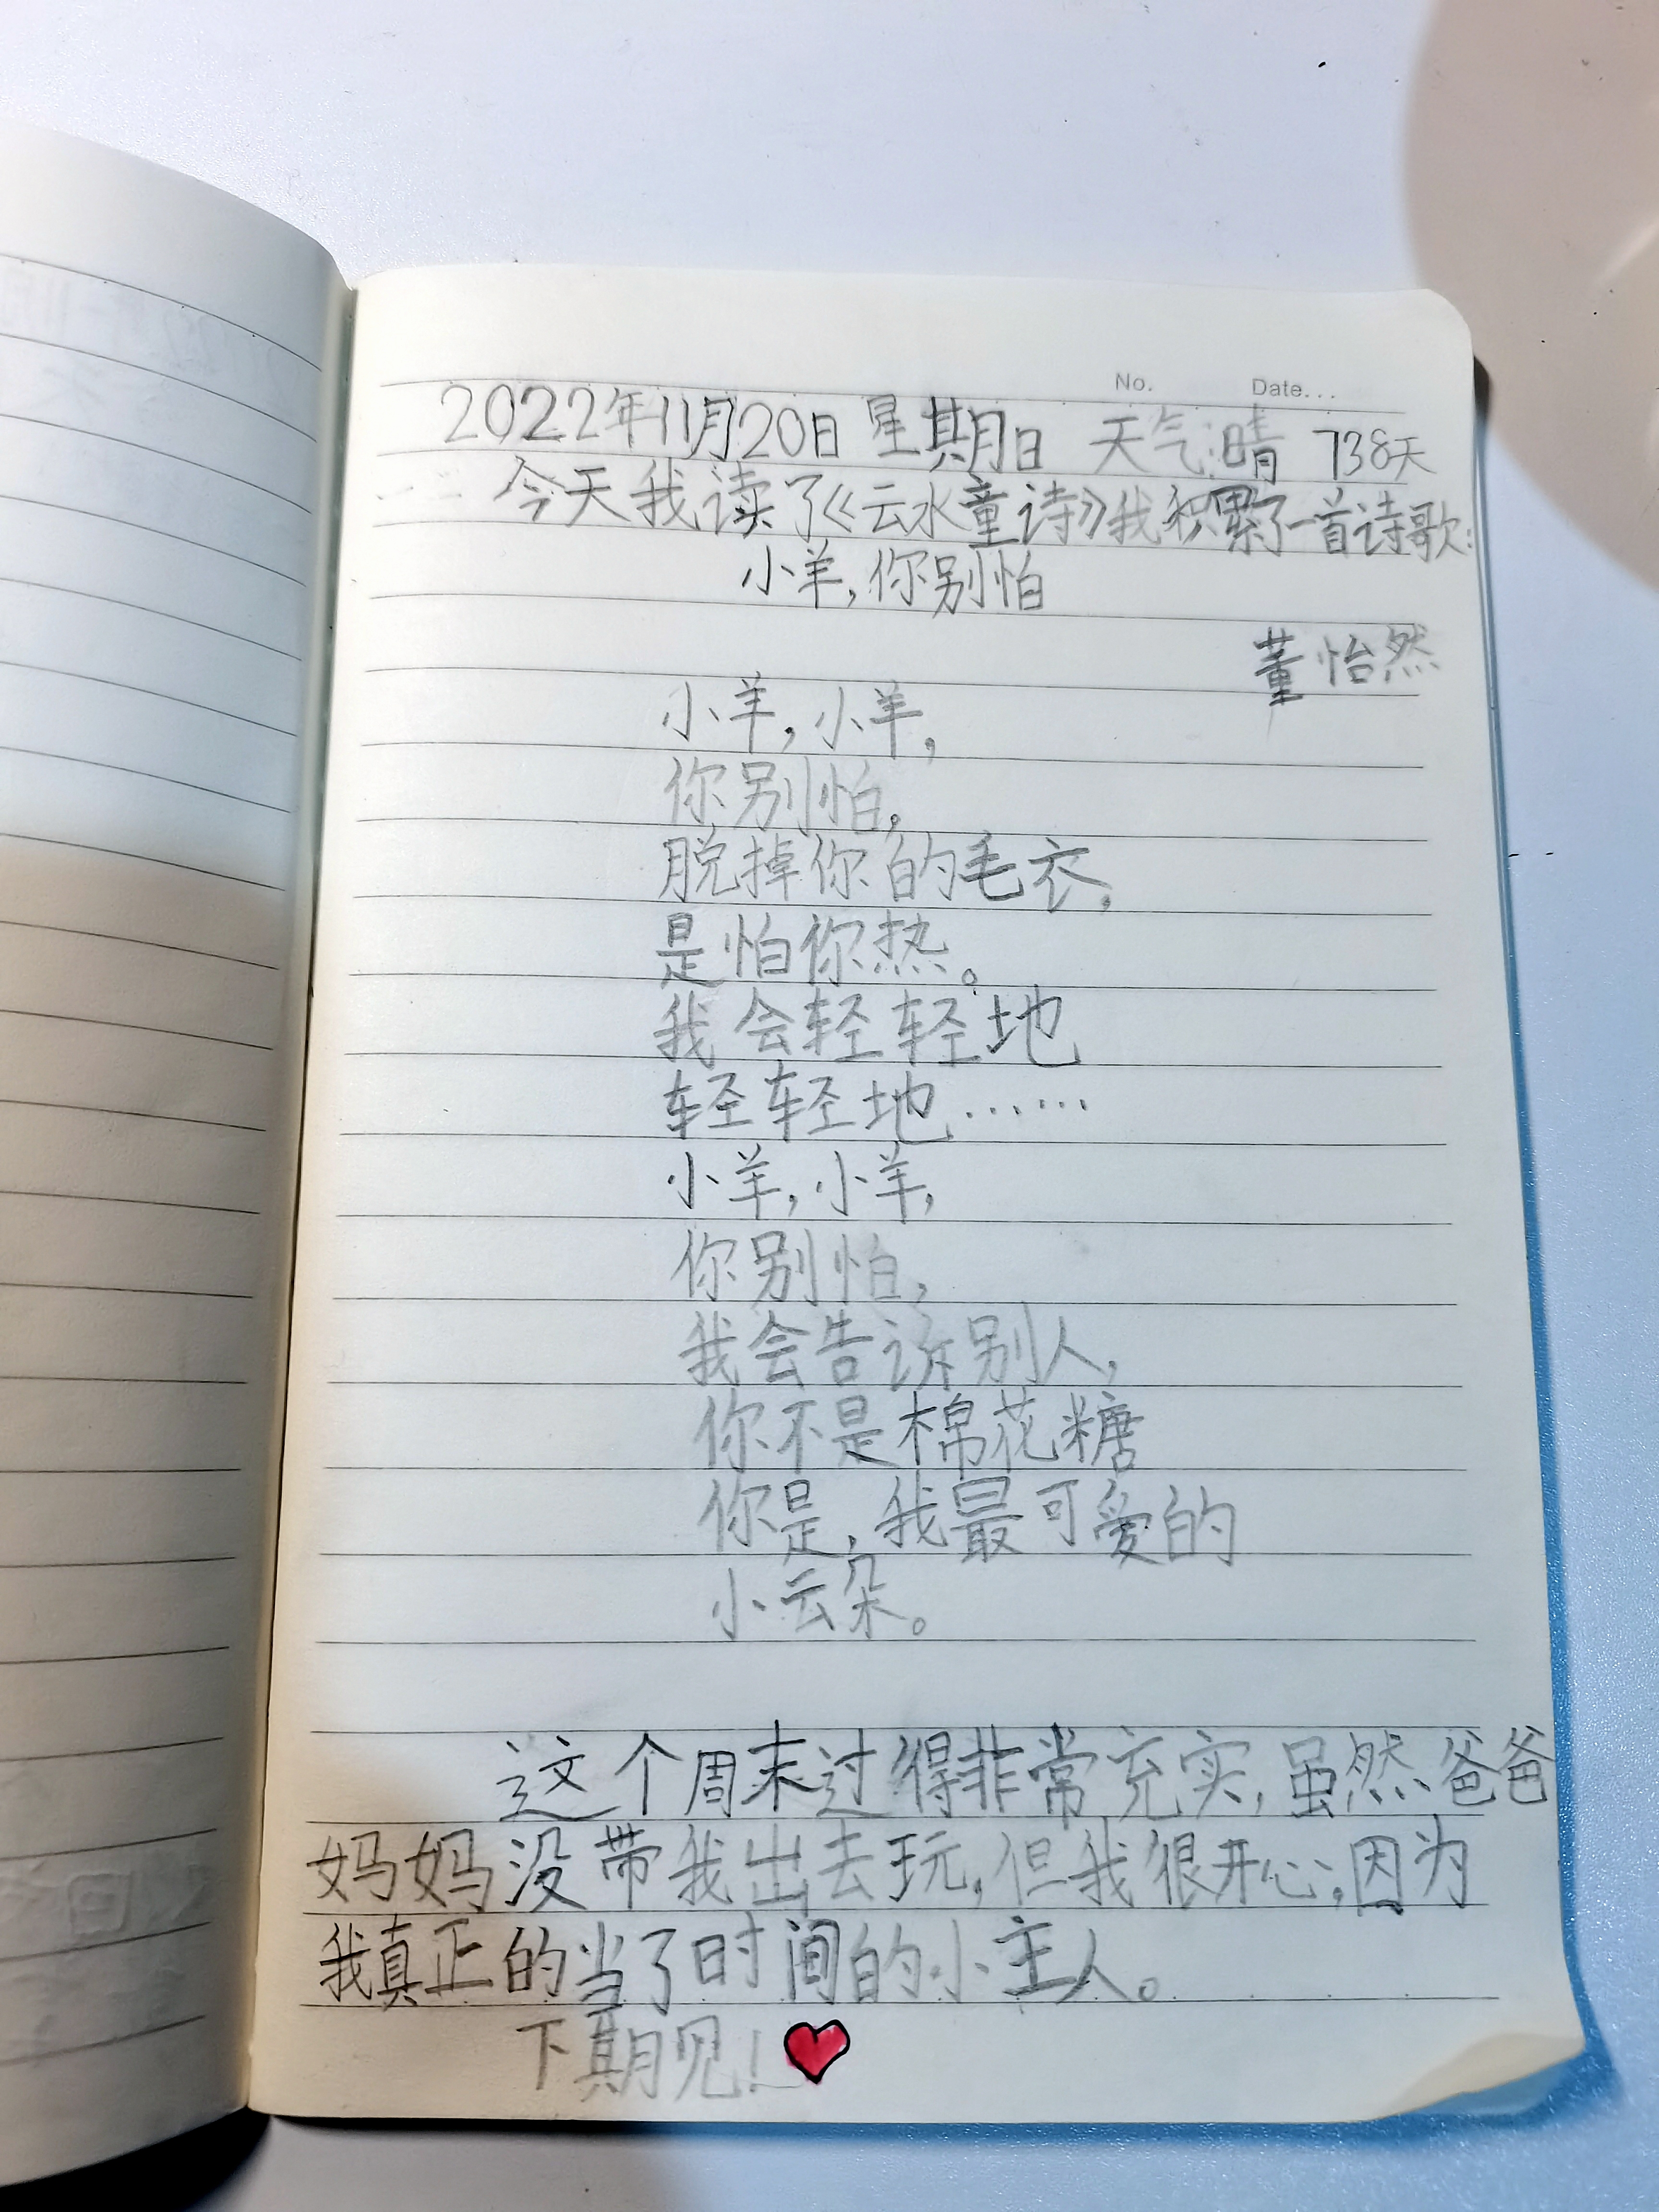 No. Date...
2022年11月20日 星期日 天气:晴 738天
今天我读了《云水童诗》我积累了一首诗歌:
小羊,你别怕
董怡然
小羊,小羊,
你别怕,
脱掉你的毛衣,
是怕你热。
我会轻轻地
轻轻地……
小羊,小羊,
你别怕,
我会告诉别人,
你不是棉花糖
你是,我最可爱的
小云朵。
这个周末过得非常充实,虽然爸爸
妈妈没带我出去玩,但我很开心,因为
我真正的当了时间的小主人。
下期见!